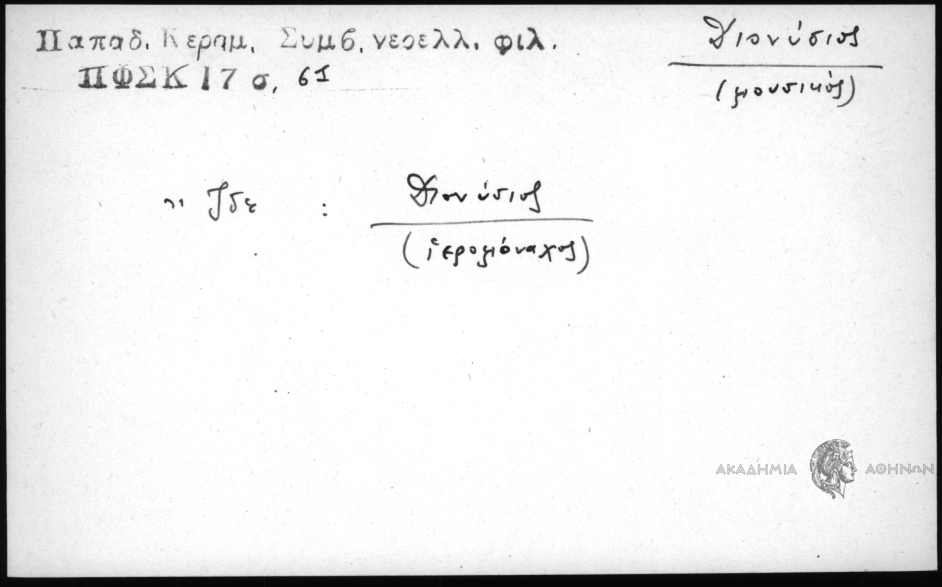 Παπαδ. Κεραμ. Συμβ. νεοελλ. φιλ.
ΠΦΣΚ 17 σ. 61
Διονύσιος
(μουσικός)
Ἴδε : Διονύσιος
(ἱερομόναχος)
ΑΚΑΔΗΜΙΑ ΑΘΗΝΩΝ